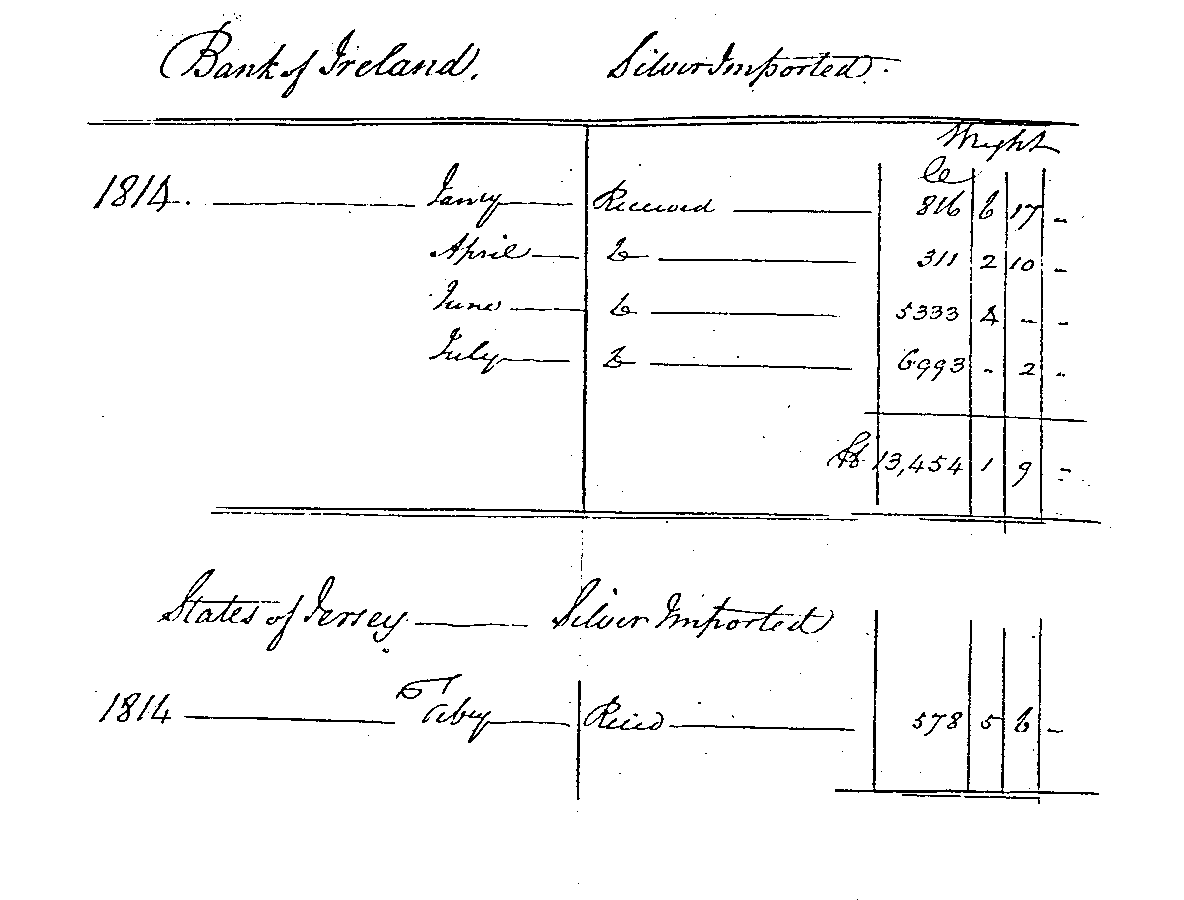 Bank of Ireland. Silver Imported.
Weight
lb
1814. Jany Received 816 6 17 -
April Do 311 2 10 -
June Do 5333 4 - -
July Do 6993 - 2 -
lb 13,454 1 9 -
States of Jersey Silver Imported
1814 Feby Recd 578 5 6 -